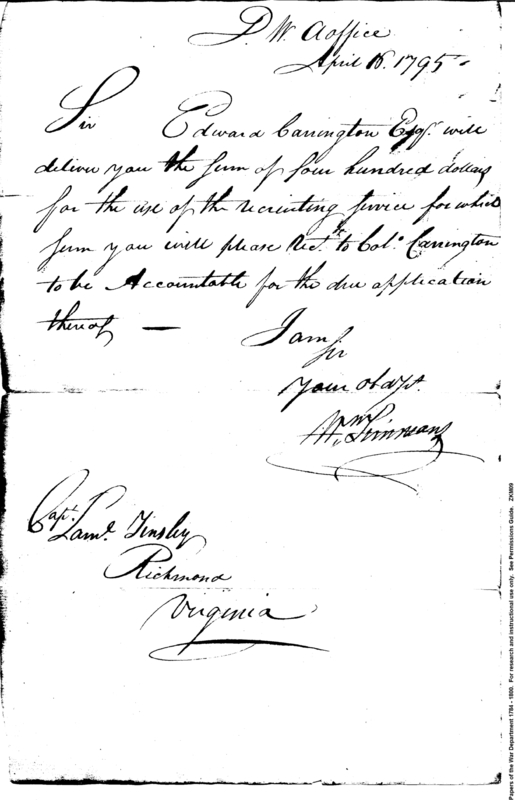 D. W. A office
April 16. 1795
Sir Edward Carrington Esqr. will
deliver you the sum of four hundred dollars
for the use of the recruiting service for which
sum you will please Rect. to Colo. Carrington
to be Accountable for the due application
thereof —
I am
Sir
Your obdt.
Wm. Simmons
Capt. Saml. Tinsley
Richmond
Virginia
Papers of the War Department 1784 - 1800. For research and instructional use only. See Permissions Guide. ZXM09